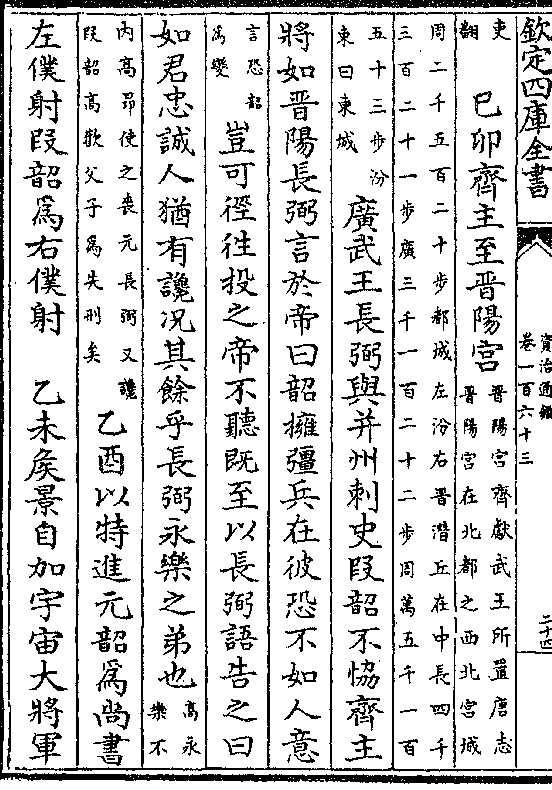 欽定四庫全書
資治通鑑
卷一百六十三
二十四
吏
翻
己卯齊主至晉陽宮
晉陽宮齊獻武王所置唐志
晉陽宮在北都之西北宮城
周二千五百二十步都城左汾右晉潛丘在中長四千
三百二十一步廣三千一百二十二步周萬五千一百
五十三步汾
東曰東城
廣武王長弼與并州刺史段韶不恊齊主
將如晉陽長弼言於帝曰韶擁彊兵在彼恐不如人意
言恐韶
為變
豈可徑往投之帝不聽既至以長弼語告之曰
如君忠誠人猶有讒况其餘乎長弼永樂之弟也
高永
樂不
内高昂使之喪元長弼又讒
段韶高歡父子為失刑矣
乙酉以特進元韶為尚書
左僕射段韶為右僕射 乙未侯景自加宇宙大將軍